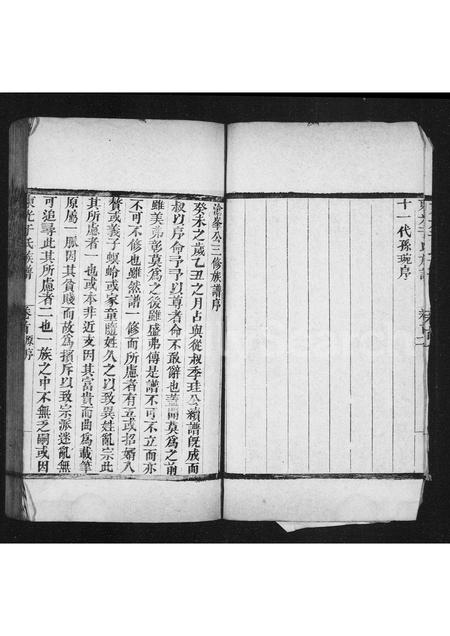 十一代孫琬序
滄峯公三修族譜序
癸未之歲乙丑之月占與從叔季珪公續譜旣成而
叔以序命予予以尊者命不敢辭也蓋聞莫爲之前
雖美弗彰莫爲之後雖盛弗傳是譜不可不立而亦
不可不修也雖然譜一修而所慮者有三或招婿入
贅或義子螟蛉或家童隨姓久之以致異姓亂宗此
其所慮者一也或本非近支因其富貴而曲爲載筆
原屬一脈因其貧賤而故爲擯斥以致宗派迷亂無
可追尋此其所慮者二也一族之中不無乏嗣或因
東光于氏族譜 卷首 原序